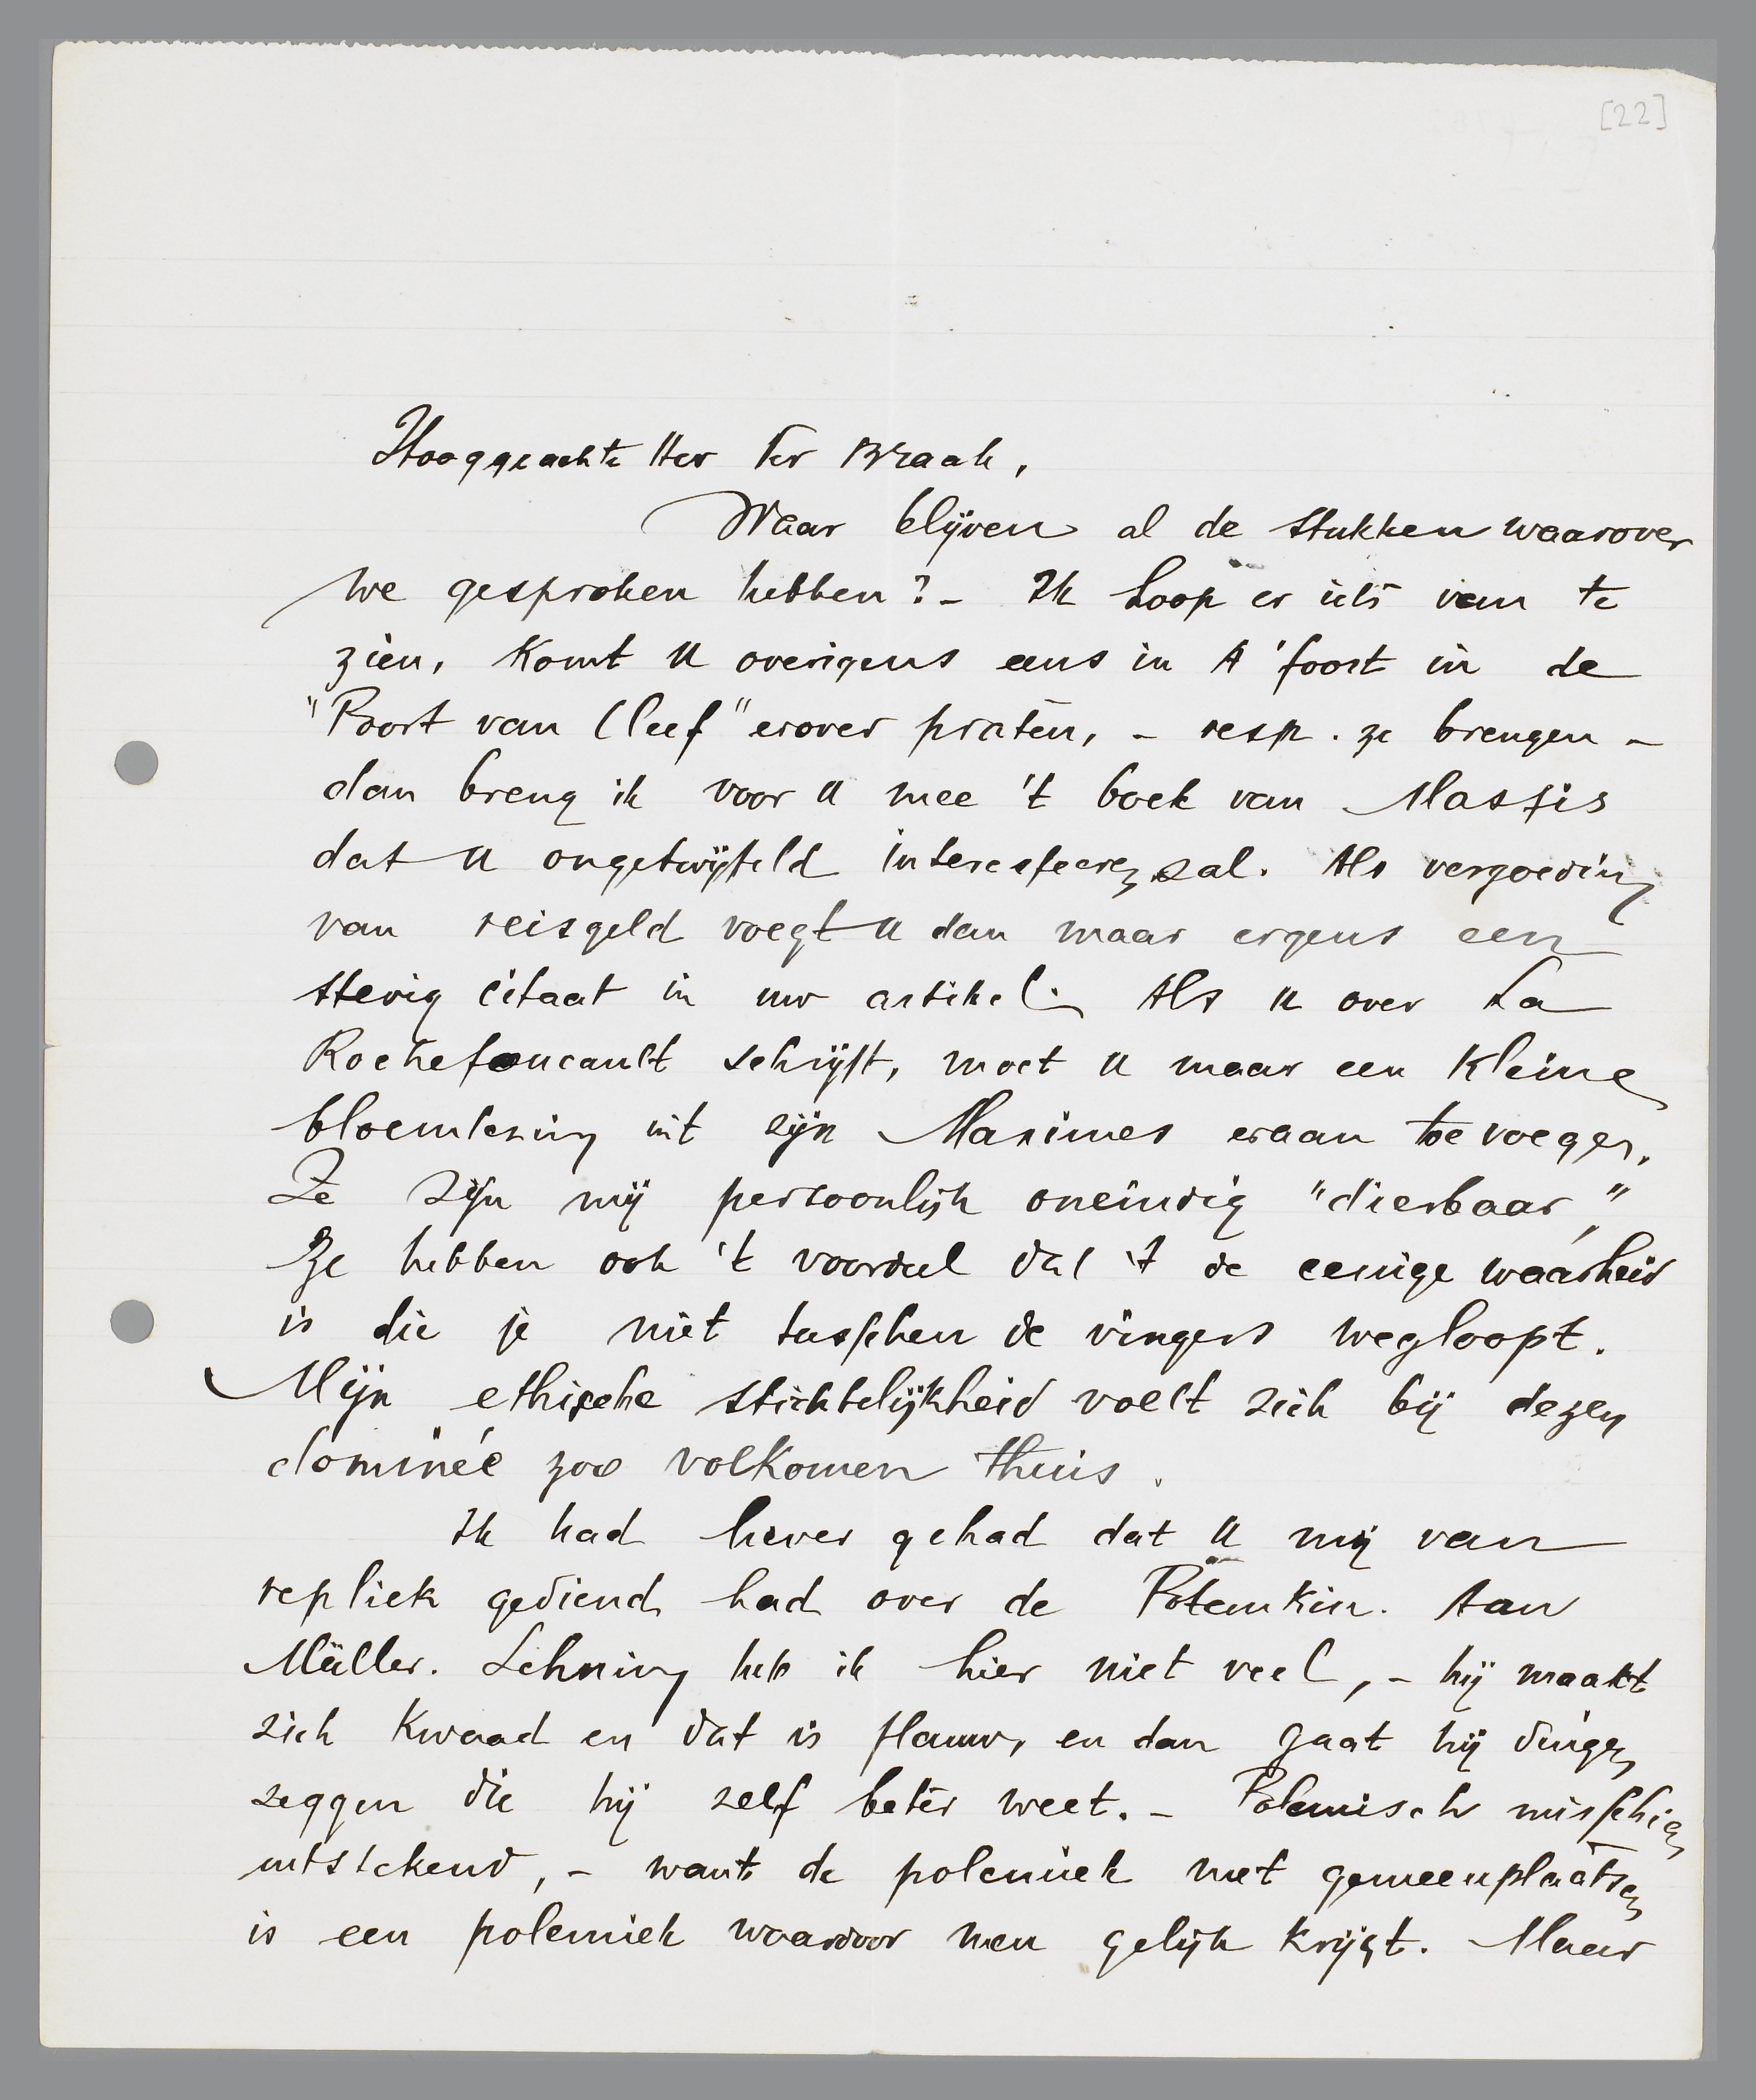 [22]
Hooggeachte Heer Ter Braak,
Waar blijven al de stukken waarover
we gesproken hebben? – Ik hoop er iets van te
zien, Komt U overigens eens in A'foort in de
"Poort van Cleef" erover praten, – resp. ze brengen –
dan breng ik voor U mee 't boek van Massis
dat U ongetwijfeld interesseeren zal. Als vergoeding
van reisgeld voegt U dan maar ergens een
stevig citaat in uw artikel. Als U over La
Rochefoucault schrijft, moet U maar een Kleine
bloemlezing uit zijn Maximes eraan toevoegen.
Ze zijn mij persoonlijk oneindig "dierbaar",
Ze hebben ook 't voordeel dat 't de eenige waarheid
is die je niet tusschen de vingers wegloopt.
Mijn ethische stichtelijkheid voelt zich bij dezen
dominéé zoo volkomen thuis.
Ik had liever gehad dat U mij van
repliek gediend had over de Potemkin. Aan
Müller. Lehning heb ik hier niet veel, – hij maakt
zich Kwaad en dat is flauw, en dan gaat hij dingen
zeggen die hij zelf beter weet. – Polemisch misschien
uitstekend, – want de polemiek met gemeenplaatsen
is een polemiek waardoor men gelijk Krijgt. Maar